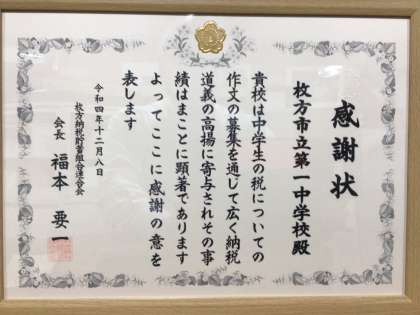 感謝状
枚方市立第一中学校殿
貴校は中学生の税についての
作文の募集を通して広く納税
道義の高揚に寄与されその事
績はまことに顕著であります
よってここに感謝の意を
表します
令和四年十二月八日
枚方納税貯蓄組合連合会
会長 福本 要一